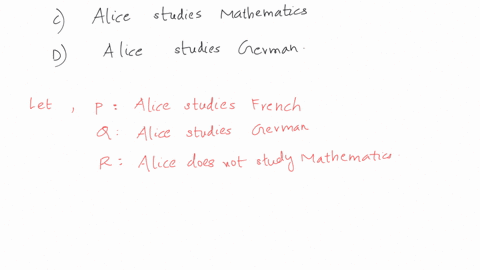 C) Alice studies Mathematics
D) Alice studies German.
Let, P: Alice studies French
Q: Alice studies German
R: Alice does not study Mathematics.